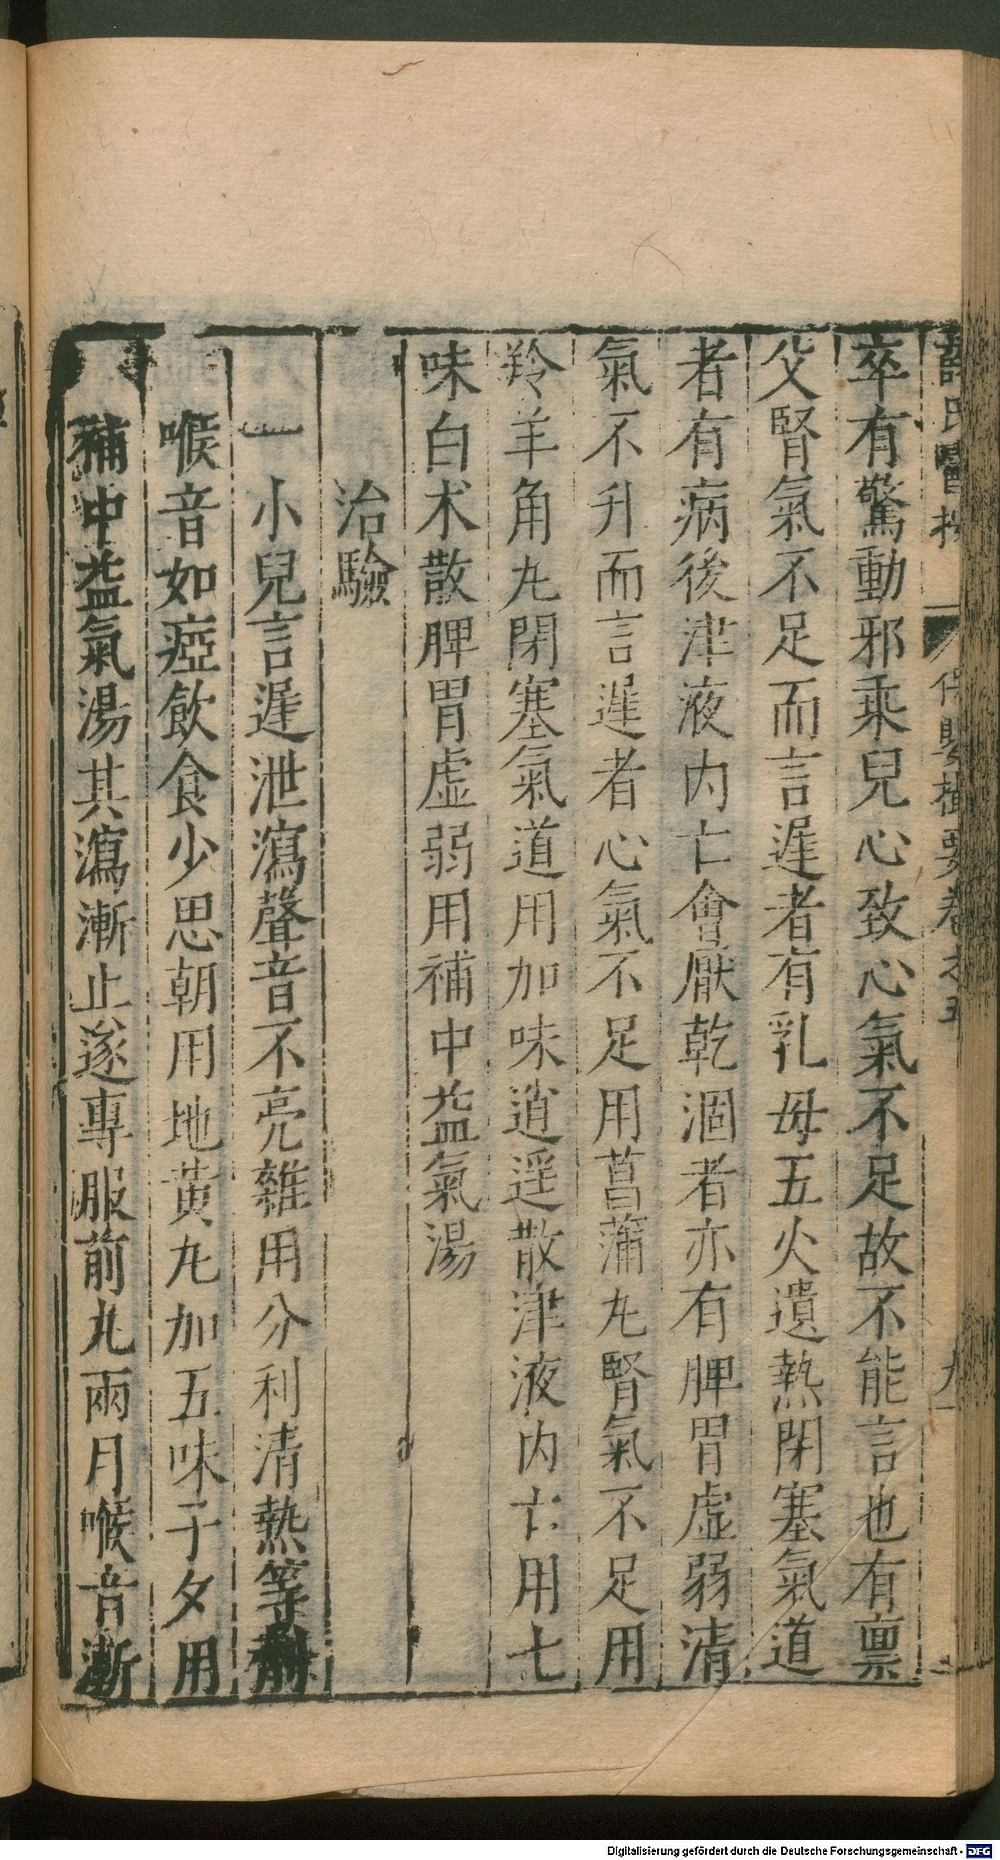 薛氏醫按　保嬰撮要卷之五　九
卒有驚動邪乘兒心致心氣不足故不能言也有禀
父腎氣不足而言遲者有乳母五火遺熱閉塞氣道
者有病後津液内亡會厭乾涸者亦有脾胃虚弱清
氣不升而言遲者心氣不足用菖蒲丸腎氣不足用
羚羊角丸閉塞氣道用加味逍遥散津液内亡用七
味白术散脾胃虚弱用補中益氣湯
治驗
一小兒言遲泄瀉聲音不亮雜用分利清熱等劑
喉音如瘂飲食少思朝用地黄丸加五味子夕用
補中益氣湯其瀉漸止遂專服前丸兩月喉音漸
Digitalisierung gefördert durch die Deutsche Forschungsgemeinschaft - DFG